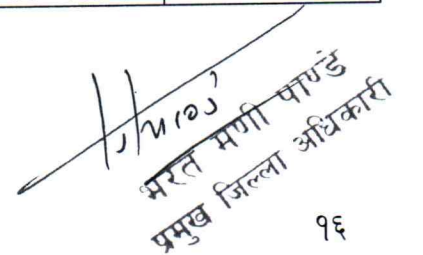 भरत मणी पाण्डे
प्रमुख जिल्ला अधिकारी
१६